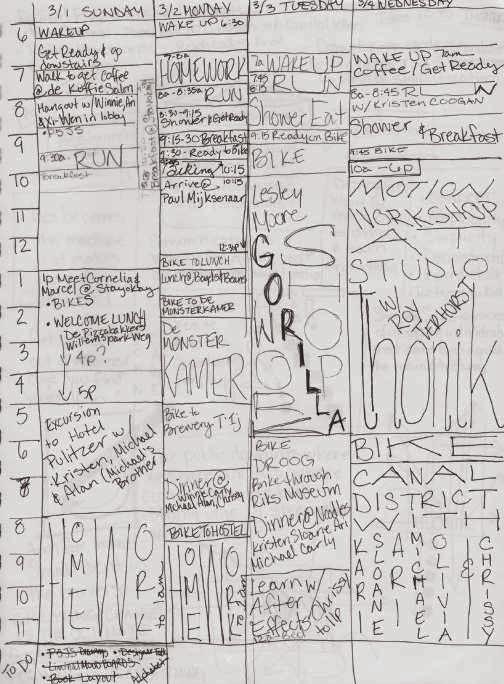 3/1 SUNDAY
6 WAKEUP
Get Ready & go
downstairs
7 Walk to get Coffee
@ de Koffie Salon
8 Hangout w/ Winnie, An
& Xi-Wen in lobby
• P5JS
9
9:30a- RUN
10 Breakfast
11
12
1 1p Meet Cornelia &
Marcel @ Stayokay
• BIKES
2 • WELCOME LUNCH
De Pizzabakkers
Willemspark-weg
3 4p?
4 5p
5 Excursion
to Hotel
6 Pulitzer w/
Kristen, Michael
& Alan (Michael's
Brother)
8
9
10
11
HOMEWORK
to 1am
3/2 MONDAY
WAKE UP 6:30
7-8a
HOMEWORK
8a - 8:35a RUN
8:30-9:15
Shower & Get Ready
9:15-30 Breakfast
9:30- Ready to Bike
Biking 10:15
Arrive @ 10:15
Paul Mijksenaar
12:30p
BIKE TO LUNCH
Lunch @ Bagels & Beans
BIKE TO DE
MONSTERKAMER
De
MONSTER
KAMER
Bike to
Brewery T-IJ
Dinner @
Winnie Carly
Michael, Alan, Chrissy
BIKE TO HOSTEL
HOMEWORK
to 1am
3/3 TUESDAY
7a WAKEUP
7:45
8:15 RUN
Shower Eat
9:15 Ready on Bike
BIKE
Lesley
Moore
GORILLA
WORKSHOP
BIKE
DROOG
Bike through
Riks Museum
Dinner @ Noodles
Kristen Sloane Ari
Michael Carly
Learn w/
After
Effects
Chrissy
to 1p
3/4 WEDNESDAY
WAKE UP 7am
Coffee/Get Ready
8a - 8:45 RUN
w/ KRISTEN COOGAN
Shower & Breakfast
9:45 BIKE
10a - 6p
MOTION
WORKSHOP
AT
STUDIO
thonik
W/
ROY
TERHORST
BIKE
CANAL
DISTRICT
WITH
KSAMO
& CHRISSY
TO DO
• P5JS Drawings
• Book Layout
Alphabet